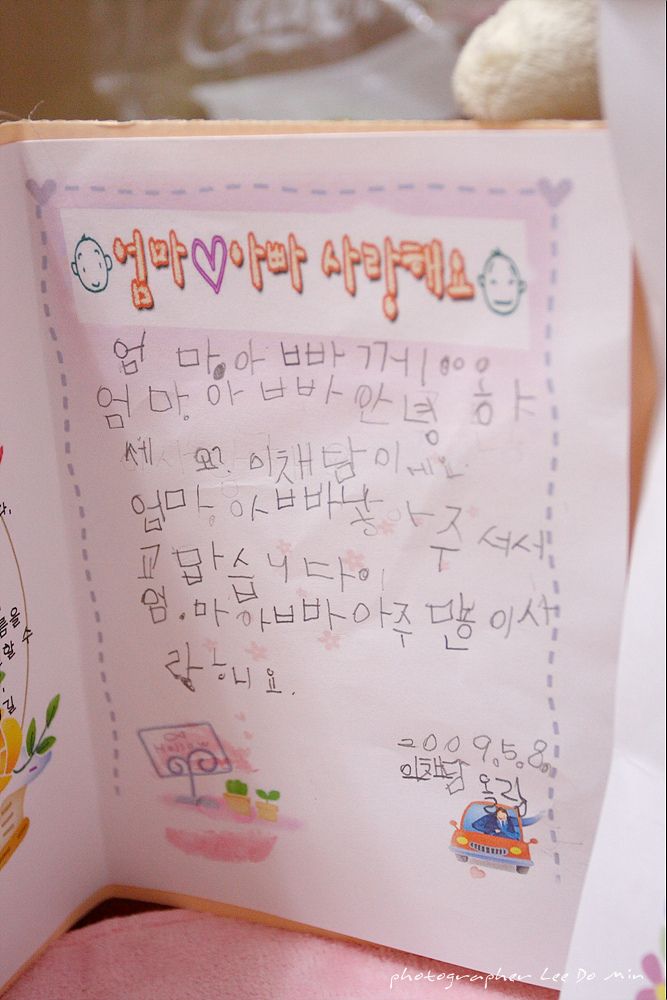 엄마♡아빠 사랑해요
엄 마, 아 빠 께
엄 마, 아 빠 안녕 하
세 요? 이채담이에요.
엄마, 아빠 낳 아 주 셔서
고 맙 습 니 다
엄.마 아빠 아주 많이 사
랑 해요.
2009.5.8.
이채담 올림
름을
할 수
길
photographer Lee Do Min